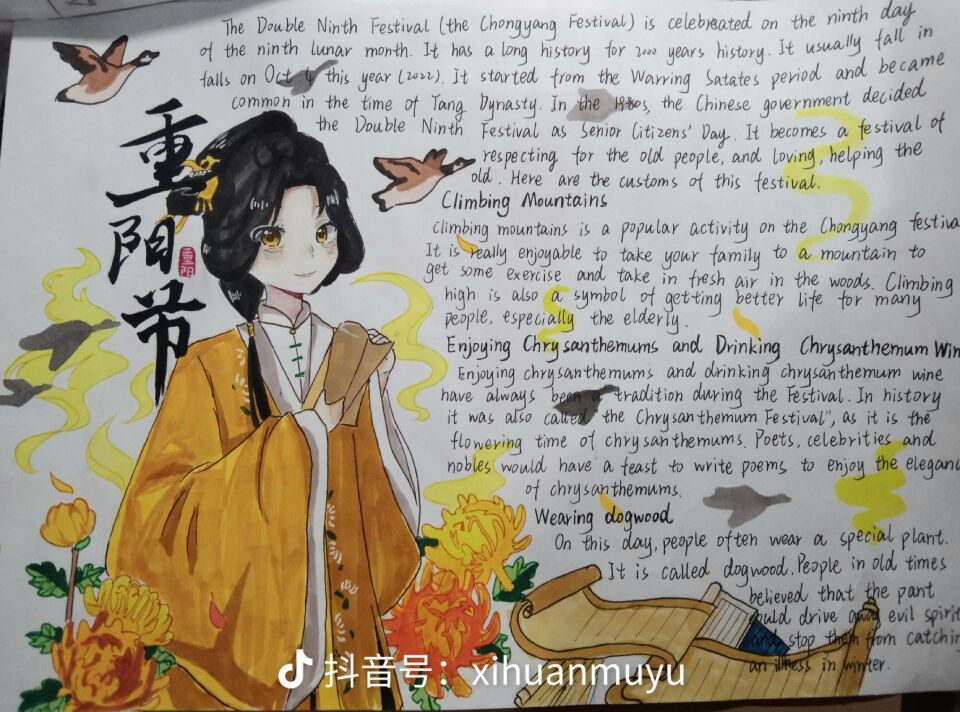 The Double Ninth Festival (the Chongyang Festival) is celebreated on the ninth day
of the ninth lunar month. It has a long history for 2000 years history. It usually fall in
falls on Oct 4 this year (2022). It started from the Warring Satates period and became
common in the time of Tang Dynasty. In the 1980s, the Chinese government decided
the Double Ninth Festival as Senior Citizens' Day. It becomes a festival of
respecting for the old people, and loving, helping the
old. Here are the customs of this festival.
重阳节
重阳
Climbing Mountains
Climbing mountains is a popular activity on the Chongyang festiva
It is really enjoyable to take your family to a mountain to
get some exercise and take in fresh air in the woods. Climbing
high is also a symbol of getting better life for many
people, especially the elderly.
Enjoying Chrysanthemums and Drinking Chrysanthemum Win
Enjoying chrysanthemums and drinking chrysanthemum wine
have always been a tradition during the Festival. In history
it was also called "the Chrysanthemum Festival", as it is the
flowering time of chrysanthemums. Poets, celebrities and
nobles would have a feast to write poems to enjoy the eleganc
of chrysanthemums.
Wearing dogwood
On this day, people often wear a special plant.
It is called dogwood. People in old times
believed that the pant
could drive away evil spirit
and stop them from catchin
an illness in winter.
抖音号：xihuanmuyu